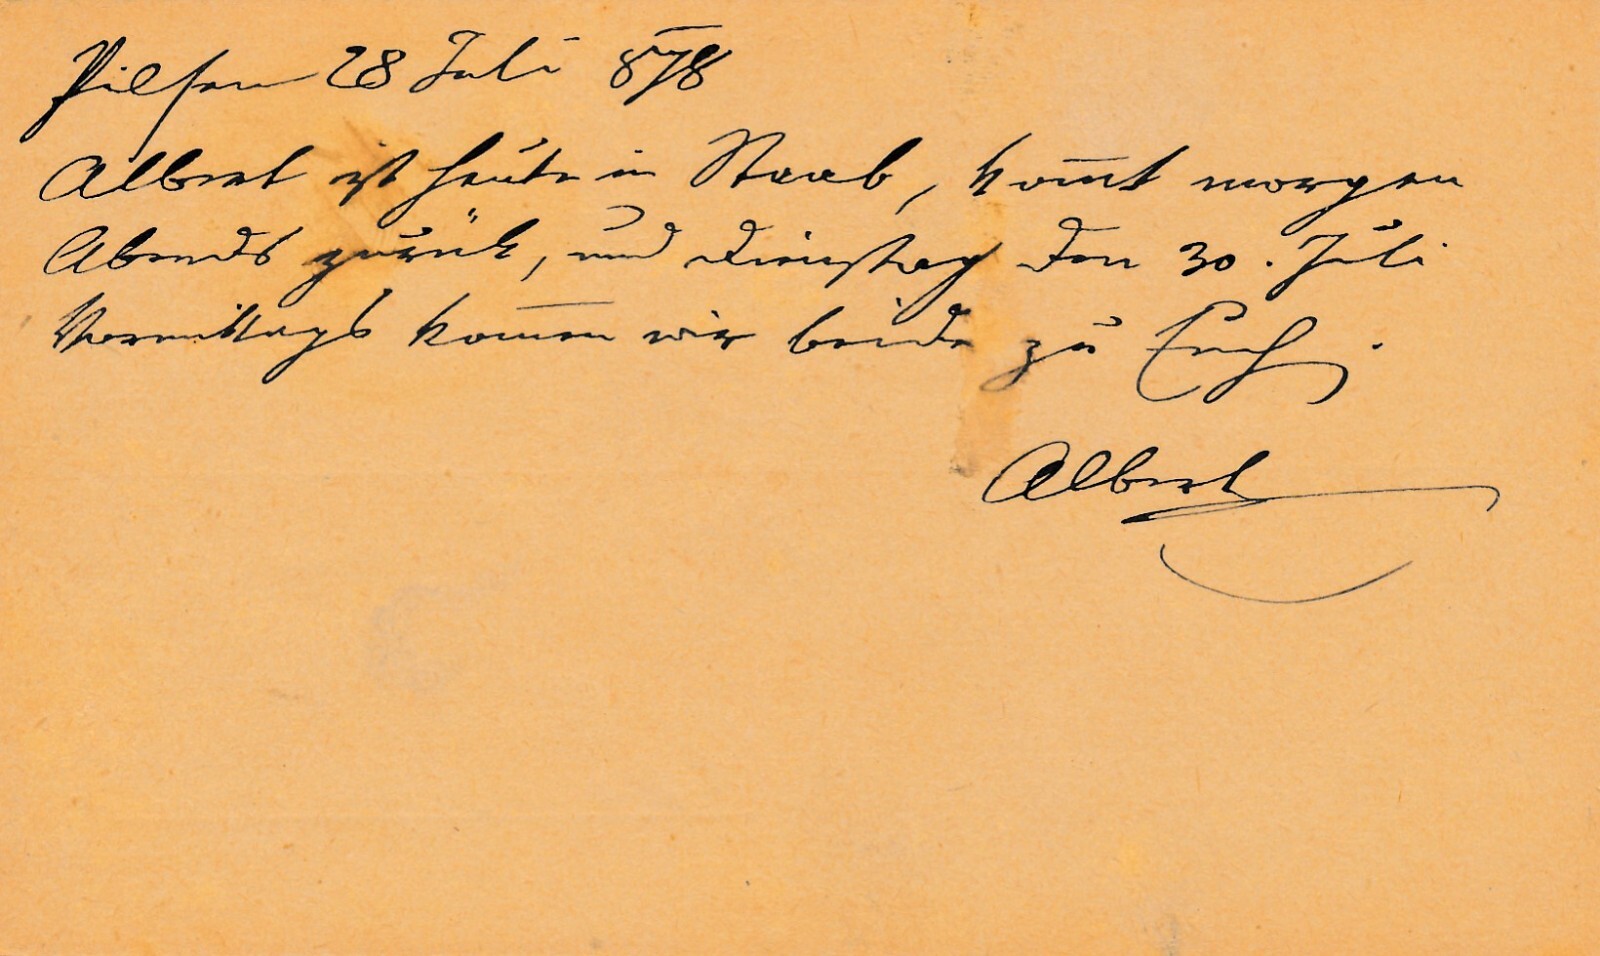 Pilsen 28 Juli 878
Albert ist heute in Staab, kom̅t morgen
Abends zurück, und Dienstag den 30. Juli
Vormittags kom̅en wir beide zu Euch.
Albert